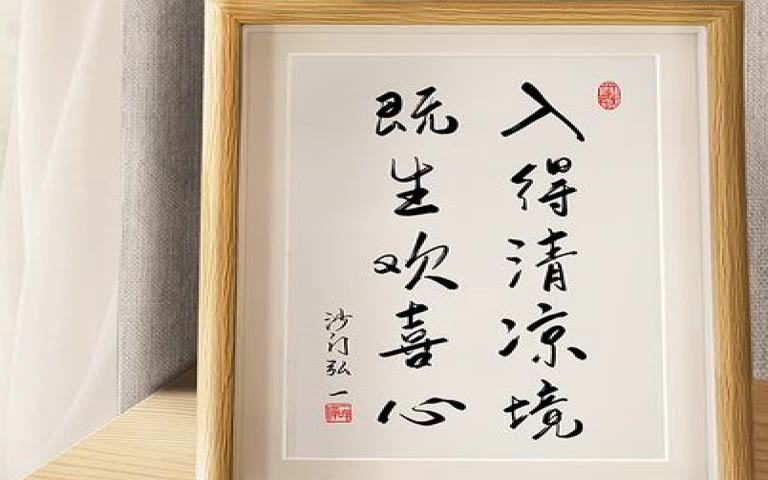 入得清凉境
既生欢喜心
沙门弘一